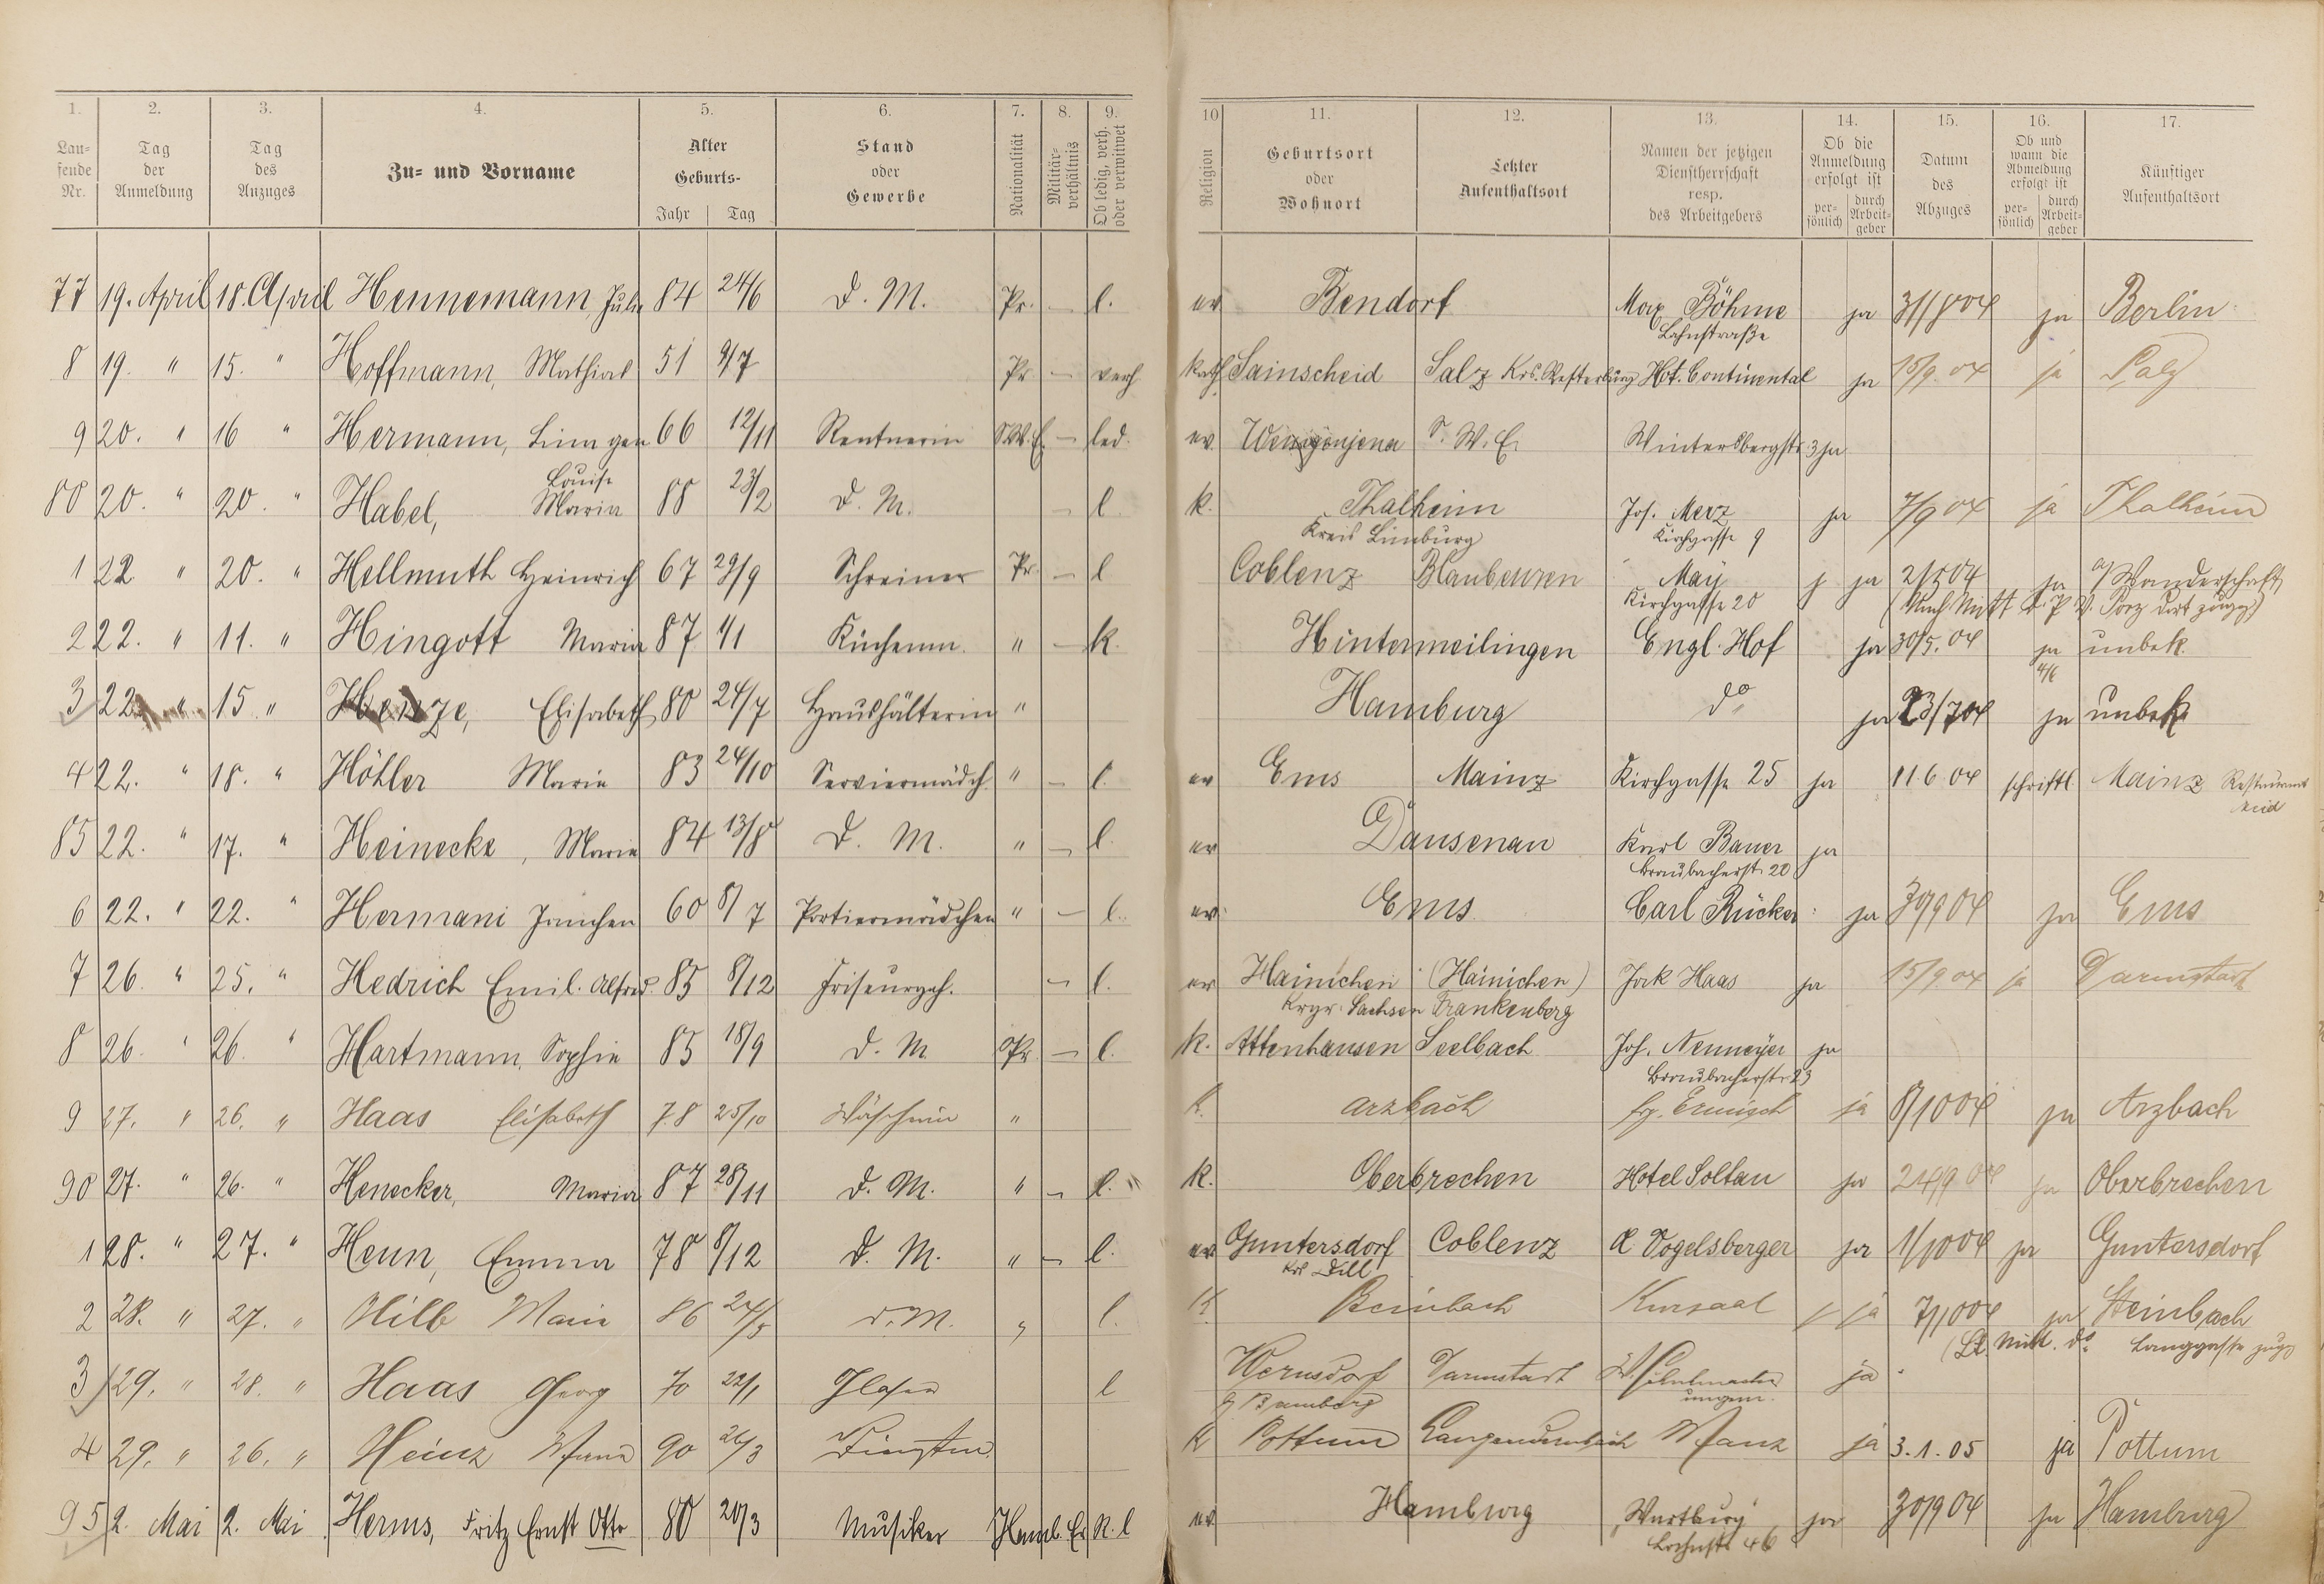 1. 2. 3. 4. 5. 6. 7. 8. 9. 10 11. 12. 13. 14. 15. 16. 17.
Lau=
fende
Nr.
Tag
der
Anmeldung
Tag
des
Anzuges
Zu= und Vorname
Alter
Geburts-
Jahr Tag
Stand
oder
Gewerbe
Nationalität
Militär-
verhältnis
Ob ledig, verh.
oder verwitwet
Religion
Geburtsort
oder
Wohnort
Letzter
Aufenthaltsort
Namen der jetzigen
Dienstherrschaft
resp.
des Arbeitgebers
Ob die
Anmeldung
erfolgt ist
per-
sönlich
durch
Arbeit-
geber
Datum
des
Abzuges
Ob und
wann die
Abmeldung
erfolgt ist
per-
sönlich
durch
Arbeit-
geber
Künftiger
Aufenthaltsort
77 19. April 18. April Hennemann, Julie 84 24/6 D. M. Pr. — l. ev Bendorf Max Böhme ja 31/8 04 ja Berlin
Lahnstraße
8 19. " 15. " Hoffmann, Mathias 51 9/7 Pr. — verh kath Sainscheid Salz Krs. Westerburg Hot. Continental ja 15/9. 04 ja Salz
9 20. " 16 " Hermann, 66 12/11 Rentnerin S.W.E. — led. ev S. W. E. Wintersbergstr. 3 ja
Louise
80 20. " 20. " Habel, Maria 88 23/2 D. M. — l. k. Thalheim Jos. Merz ja 7/9 04 ja Thalheim
Kreis Limburg Kirchgasse 9
1 22 " 20. " Hellmuth Heinrich 67 29/9 Schreiner Pr. — l Coblenz Blaubeuren May ja 2/5 04 ja a/ Wanderschaft
Kirchgasse 20
2 22. " 11. " Hingott Maria 87 1/1 Küchenm. " — k. Hintermeilingen Engl. Hof ja 30/5. 04 ja unbek.
3 22 " 15 " Henze, Elisabeth 80 24/7 Haushälterin " Hamburg do ja 23/7 04 ja unbek
4 22. " 18. " Höhler Marie 83 24/10 Serviermädch. " — l. ev Ems Mainz Kirchgasse 25 ja 11 6 04 schriftl. Mainz Restaurant
85 22. " 17. " Heinecke, Marie 84 13/8 D. M. " — l. ev Dausenau Karl Bauer ja
Braubacherstr. 20
6 22. " 22. " Hermani Jänchen 60 8/7 Portiermädchen " — l. ev. Ems Carl Rücker ja 30/9 04 ja Ems
7 26. " 25. " Hedrich Emil. Alfred. 85 8/12 Friseurgeh. — l. ev Hainichen (Hainichen) Jak Haas ja 15/9 04 ja Darmstadt
Kgr. Sachsen Frankenberg
8 26. " 26. " Hartmann, Sophie 85 18/9 D. M Pr. — l. k. Attenhausen Seelbach Joh. Neumeyer ja
Braubacherstr. 23
9 27. " 26. " Haas Elisabeth 78 25/10 " k. Arzbach ja 8/10 04 ja Arzbach
90 27. " 26. " Henecker, Maria 87 28/11 D. M. " — l. k. Oberbrechen Hotel Soltau ja 24/9 04 ja Oberbrechen
1 28. " 27. " Henn, Emma 78 8/12 D. M. " — l. ev Guntersdorf Coblenz A Vogelsberger ja 1/10 04 ja Guntersdorf
Krs Dill
2 28. " 27. " Hilb Marie 86 24/5 D. M. " l. K Kursaal ja 7/10 04 ja Steinbach
Langgasse
3 29. " 28. " Haas Georg 70 22/1 Glaser l Wernsdorf Darmstadt ja
b Bamberg
4 29. " 26. " Heinz 90 26/3 k Pottum ja 3. 1. 05 ja Pottum
95 2. Mai 2. Mai Herms, Fritz Ernst Otto 80 20/3 Musiker Hamb. Er. R. l ev Hamburg Wartburg ja 30/9 04 ja Hamburg
46